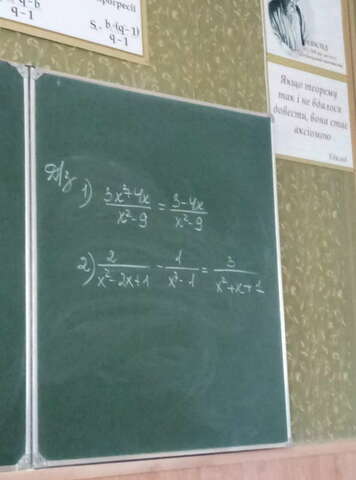 прогресії
q-1
S = b₁(qⁿ-1)
q-1
Якщо теорему
так і не вдалося
довести, вона стає
аксіомою
Евклід
Д/з
1) (3x²+4x)/(x²-9) = (3-4x)/(x²-9)
2) 2/(x²-2x+1) - 1/(x³-1) = 3/(x²+x+1)